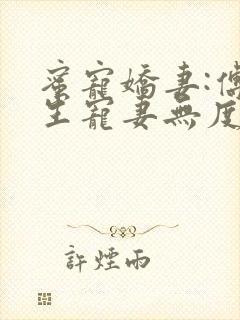 蜜寵嬌妻:傅
生寵妻無度
許煙雨